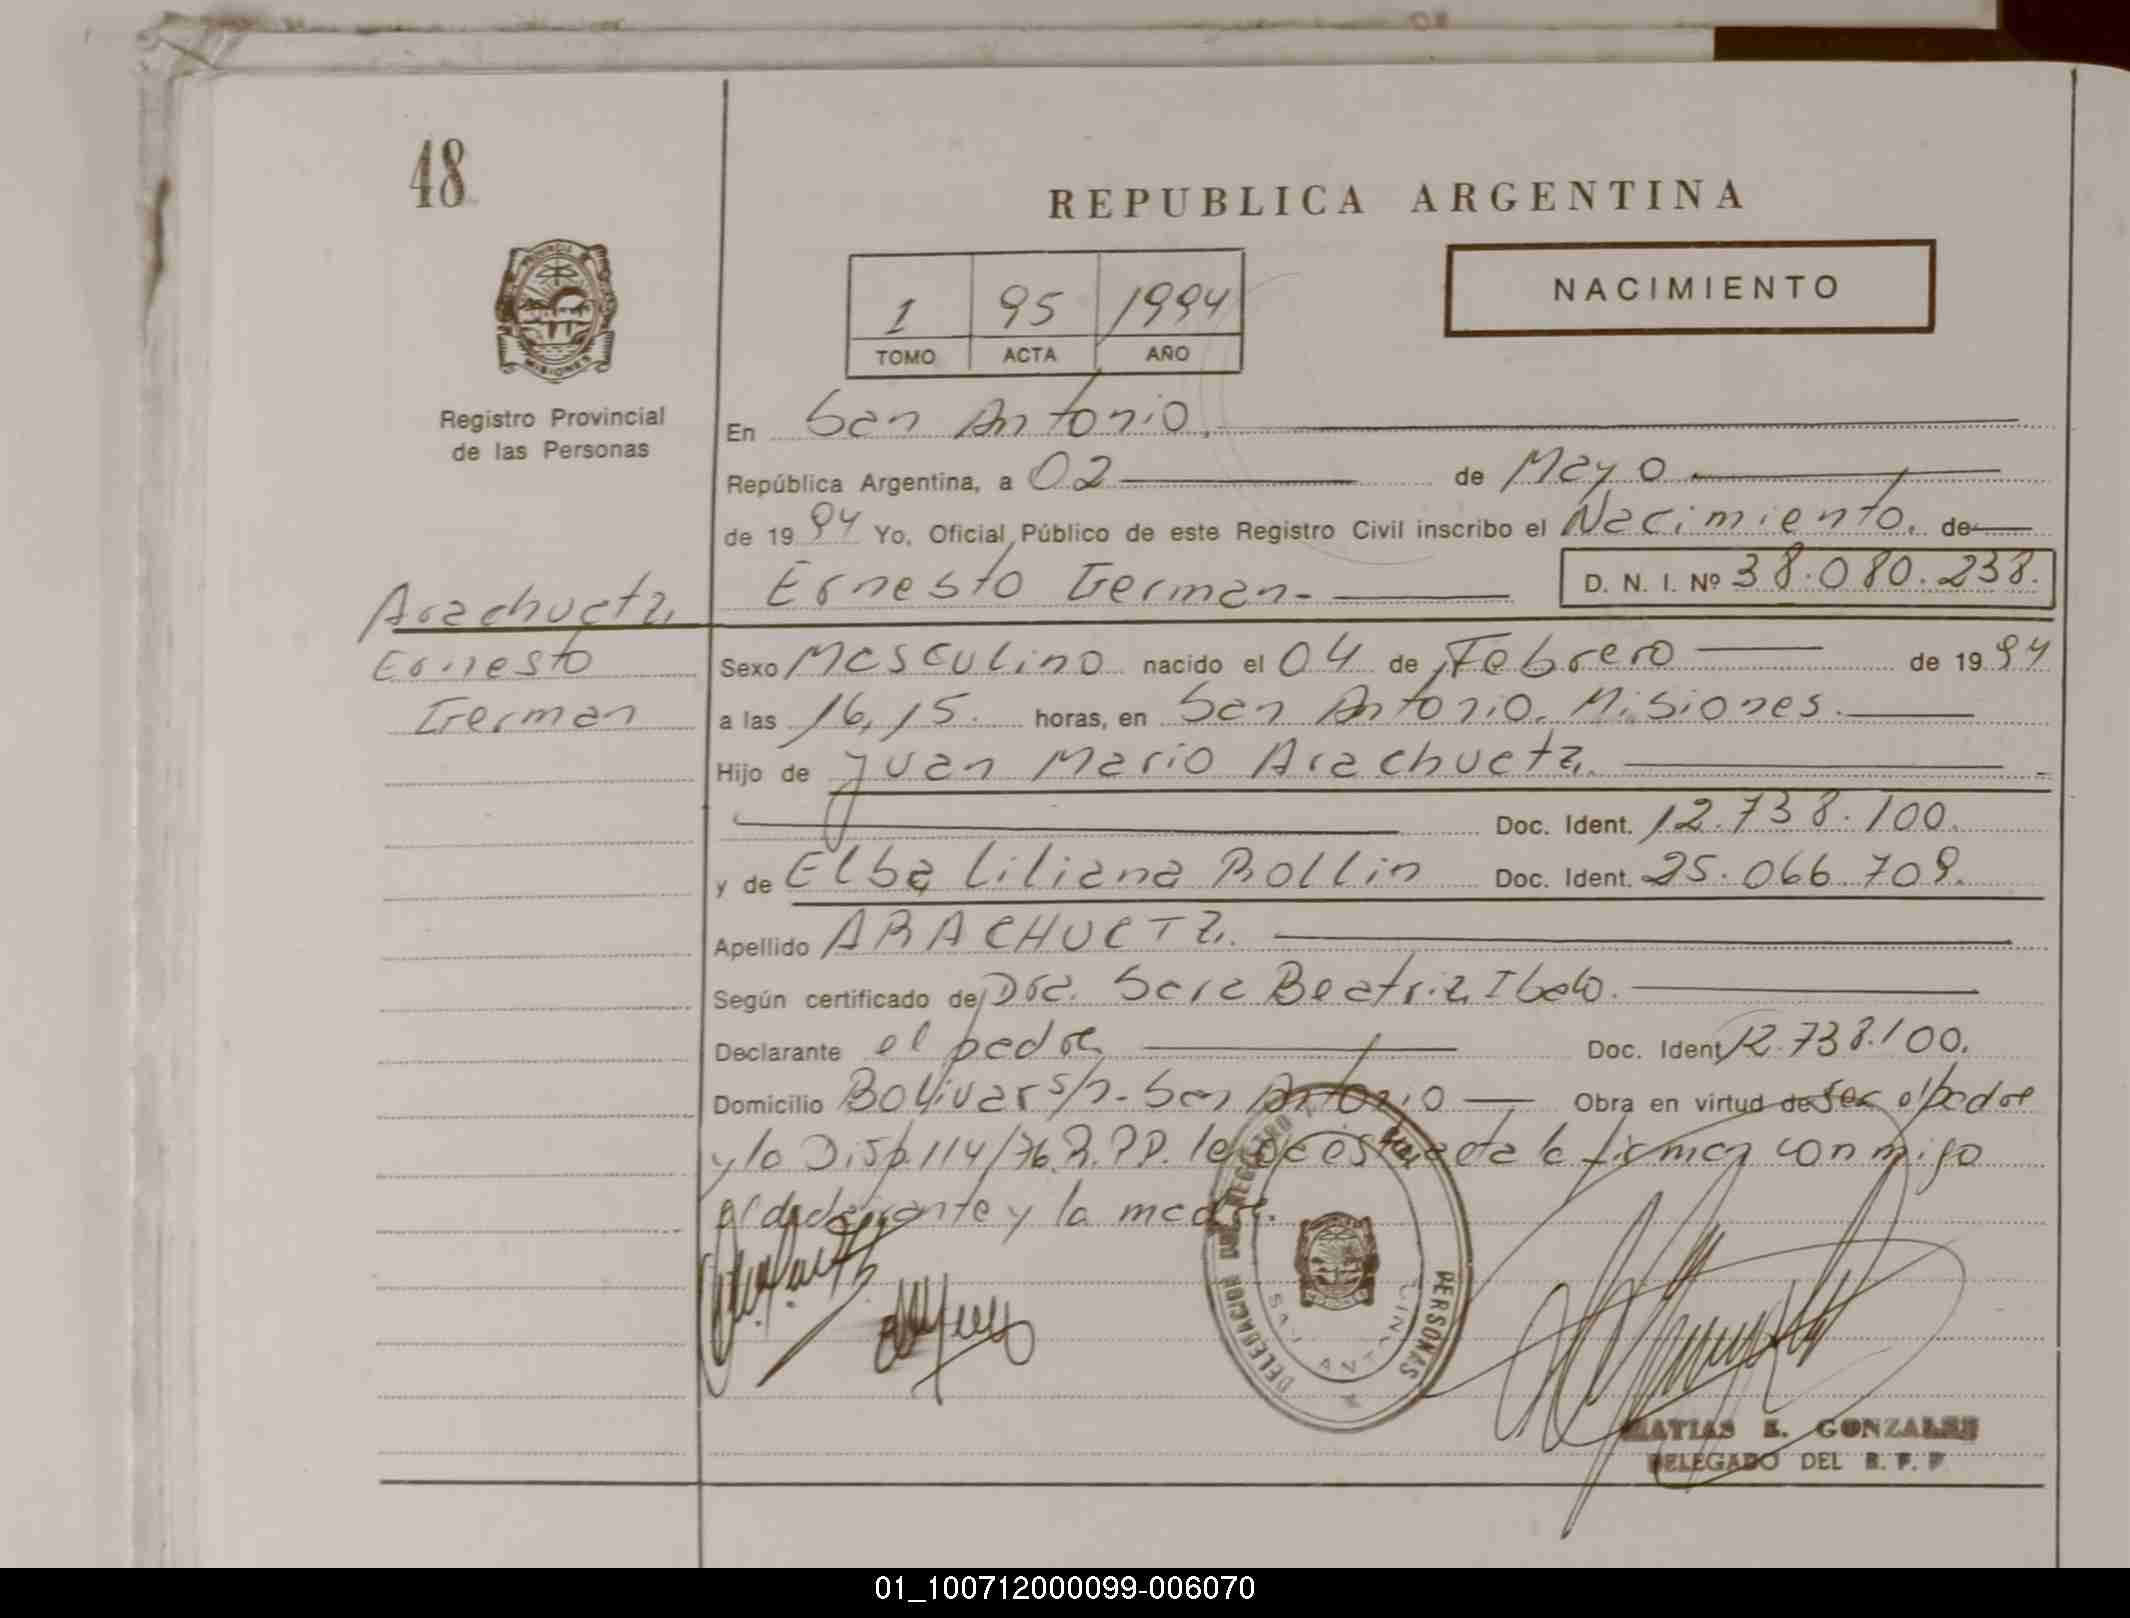 48
REPUBLICA ARGENTINA
NACIMIENTO
1 95 1994
TOMO ACTA AÑO
PROVINCIA
MISIONES
Registro Provincial
de las Personas
En San Antonio.
República Argentina, a 02 de Mayo
de 1994 Yo, Oficial Público de este Registro Civil inscribo el Nacimiento. de
Ernesto German.- D. N. I. Nº 38.080.238.
Arachuetz,
Ernesto
German
Sexo Masculino nacido el 04 de Febrero de 1994
a las 16,15. horas, en San Antonio. Misiones.
Hijo de Juan Mario Arachuetz.
Doc. Ident. 12.738.100.
y de Elba Liliana Rollin Doc. Ident. 25.066.709.
Apellido ARACHUETZ.
Según certificado de Dra. Sara Beatriz
Declarante el padre Doc. Ident 12.738.100.
Domicilio Bolivar s/n.- San Antonio Obra en virtud de ser el padre
y lo Disp. 114/76. R.P.P. firman conmigo
el declarante y la madre.
DELEGACION DEL REGISTRO PERSONAS
SAN ANTONIO
MATIAS E. GONZALES
DELEGADO DEL R. P. P
01_100712000099-006070